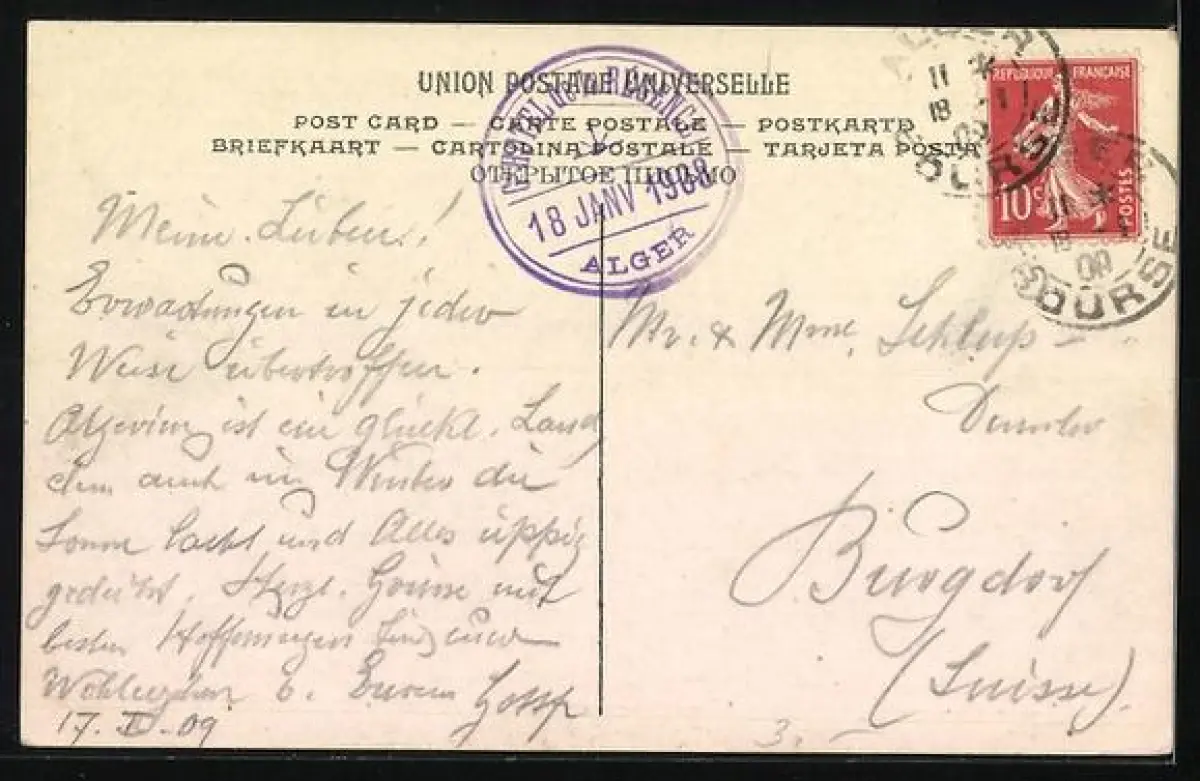 UNION POSTALE UNIVERSELLE
POST CARD — CARTE POSTALE — POSTKARTE
BRIEFKAART — CARTOLINA POSTALE — TARJETA POSTA
ОТКРЫТОЕ ПИСЬМО
HOTEL de la RÉGENCE
18 JANV 1908
ALGER
REPUBLIQUE FRANÇAISE
10c
POSTES
ALGER
11 *
18
BOURSE
11 *
BOURSE
Meine Lieben!
Erwartungen in jeder
Weise übertroffen.
Algerien ist ein glückl. Land
dem auch im Winter die
Sonne lacht und Alles üppig
gedeiht. Herzl. Grüsse mit
besten Hoffnungen für euer
Wohlergehen Eurem
17. 09
Mr. & Mme. Schlup
Burgdorf
(Suisse).
3.